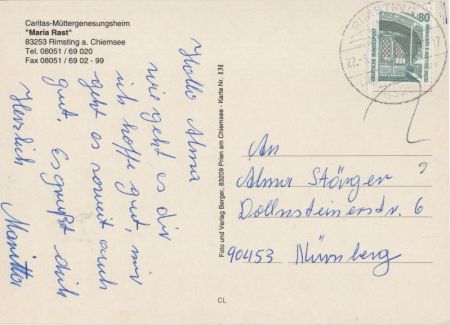 Caritas-Müttergenesungsheim
"Maria Rast"
83253 Rimsting a. Chiemsee
Tel. 08051 / 69 020
Fax 08051 / 69 02 - 99
Hallo Alma
wie geht es dir
ich hoffe gut, mir
geht es soweit auch
gut. Es grüßt dich
Herzlich
Foto und Verlag Berger, 83209 Prien am Chiemsee - Karte Nr. 131
CL
80
DEUTSCHE BUNDESPOST
An
Alma
Dollnsteinerstr. 6
90453 Nürnberg